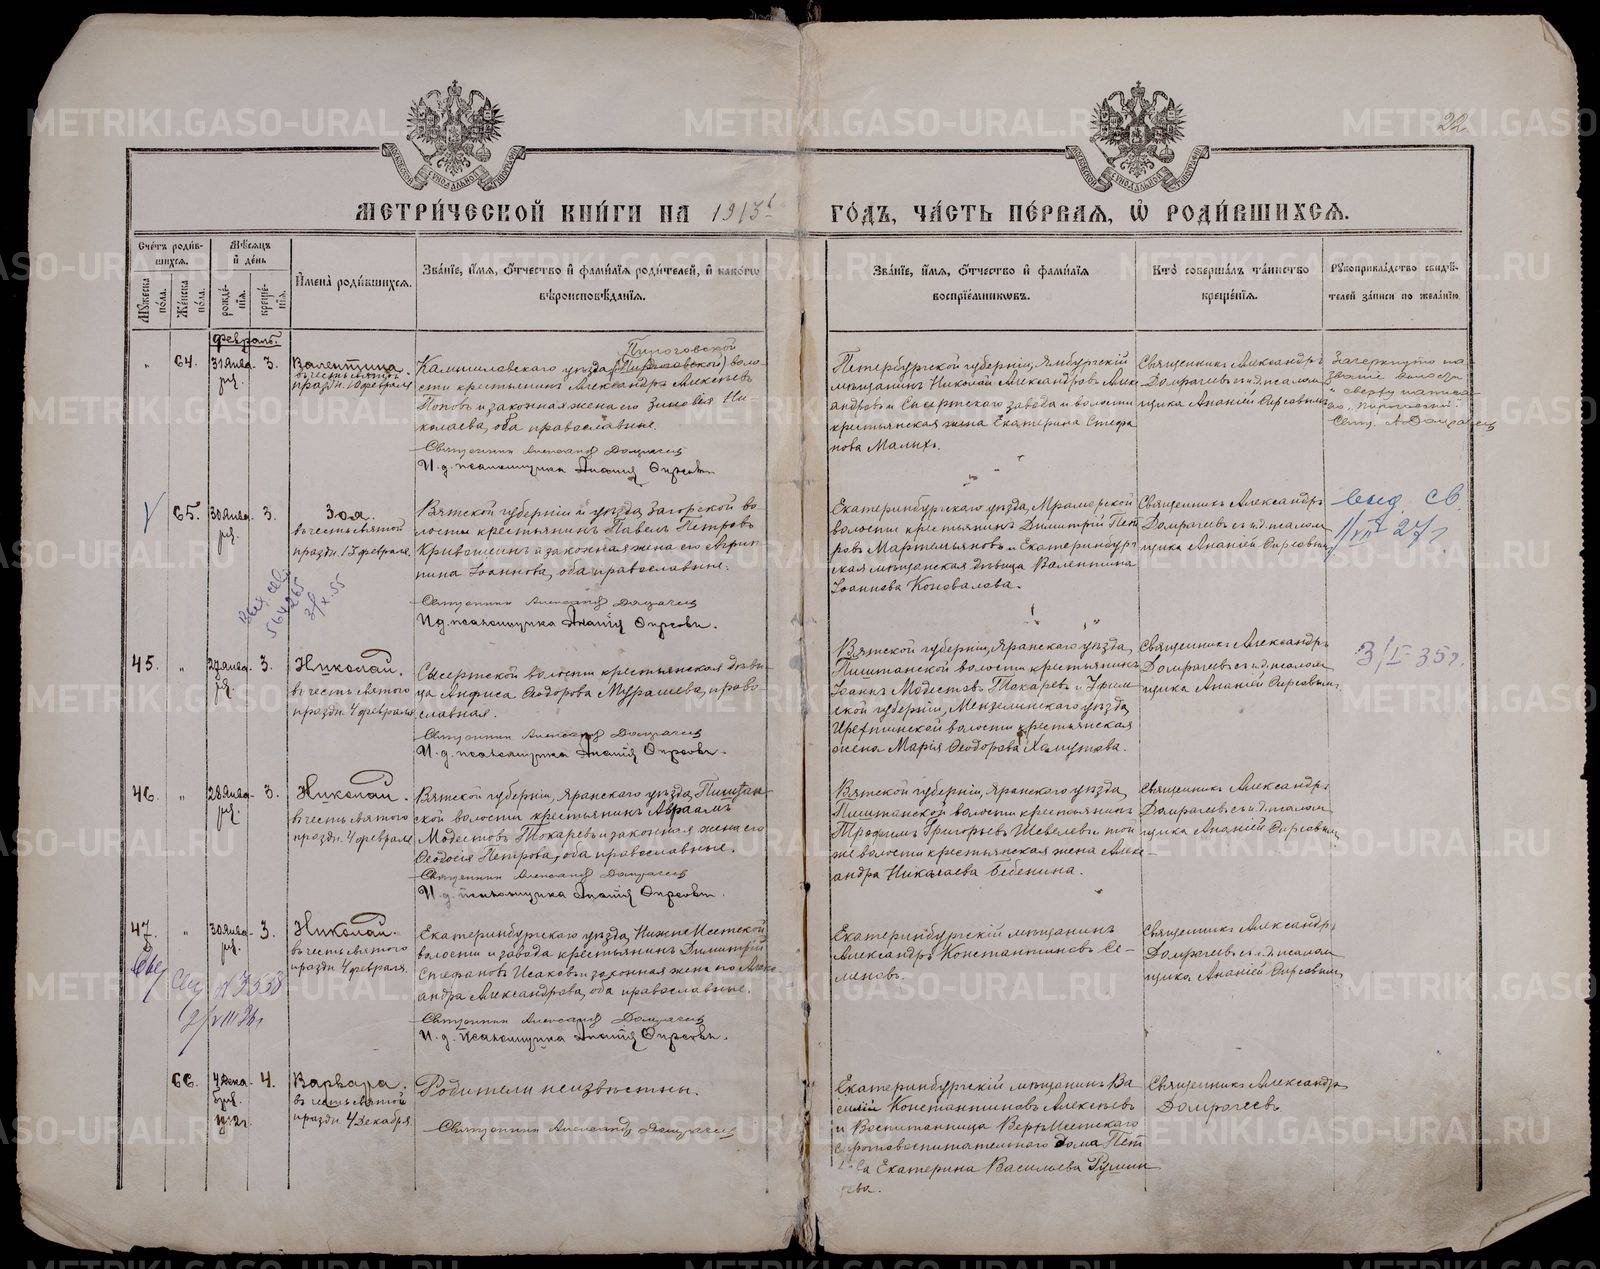 22.
МЕТРИ́ЧЕСКОЙ КНИ́ГИ НА 1913 г.
ГО́ДЪ, ЧА́СТЬ ПЕ́РВАЯ, Ѽ РОДИ́ВШИХСЯ.
Сче́тъ роди́в-
шихся.
Мѣ́сяцъ
и҆ де́нь
Мꙋ́жеска
по́ла.
Же́нска
по́ла.
рожде́-
нїя.
креще́-
нїя.
И҆мена̀ роди́вшихся.
Зва́нїе, и҆́мя, о҆́тчество и҆ фами́лїя роди́телей, и҆ како́гѡ
вѣроисповѣ́данїя.
Зва́нїе, и҆́мя, о҆́тчество и҆ фами́лїя
воспрїе́мниковъ.
Кто̀ соверша́лъ та́инство
креще́нїя.
Рꙋкоприкла́дство свидѣ́-
телей за́писи по жела́нїю.
Февраль.
„ 64. 31 Янва- 3.
ря.
Валентина.
въ честь святой
праздн. 10 февраля
Пироговской
Камышловскаго уѣзда воло-
сти крестьянинъ Александръ Алексѣевъ
Поповъ и законная жена его Зиновія Ни-
колаева, оба православные.
Священникъ Александр Домрачев
И. д. псаломщика Ананій Фирсовъ.
Петербургской губерніи, Ямбургскій
мѣщанинъ Николай Александровъ Алек-
андровъ и Сысертскаго завода и волости
крестьянская жена Екатерина Стефа
нова Малыхъ.
Священникъ Александръ
Домрачевъ и и.д. псалом
щика Ананій Фирсовъ.
Зачеркнуто на-
званіе волости
и сверху написа-
но
Свящ. А. Домрачев
65. 30 Янва- 3.
ря.
Зоя.
въ честь святой
праздн. 13 февраля.
Вятской губерніи и уѣзда Загорской во
лости крестьянинъ Павелъ Петровъ
Кривошеинъ и законная жена его Агрип
пина Іоаннова, оба православные.
Священник Александр Домрачев
И. д. псаломщика Ананій Фирсовъ.
Екатеринбургскаго уѣзда, Мраморской
волости крестьянинъ Димитрій Пет
ровъ Мартемьяновъ и Екатеринбург
ская мѣщанская дѣвица Валентина
Іоаннова Коновалова.
Священникъ Александръ
Домрачевъ и и.д. псалом
щика Ананій Фирсовъ
выд. св.
11/VII 27 г.
564265
3/X 55
45. „ 27 Янва- 3.
ря
Николай.
въ честь святого
праздн. 4 февраля
Сысертской волости крестьянская дѣви-
ца Анфиса Ѳеодорова Мурашева, право-
славная.
Священник Александр Домрачев
И. д. псаломщика Ананій Фирсовъ.
Вятской губерніи, Яранскаго уѣзда,
Пиштанской волости крестьянинъ
Іоаннъ Модестовъ Токаревъ и Уфим-
ской губерніи, Мензелинскаго уѣзда,
волости крестьянская
жена Марія Ѳеодорова Хомутова.
Священникъ Александръ
Домрачевъ и и.д. псалом
щика Ананій Фирсовъ.
3/I 35 г.
46. „ 28 Янва- 3.
ря.
Николай.
въ честь святого
праздн. 4 февраля
Вятской губерніи, Яранскаго уѣзда, Пиштан-
ской волости крестьянинъ Авраамъ
Модестовъ Токаревъ и законная жена его
Ѳеодосія Петрова, оба православные.
Священник Александр Домрачев
И. д. псаломщика Ананій Фирсовъ.
Вятской губерніи, Яранскаго уѣзда,
Пиштанской волости крестьянинъ
Трофимъ Григорьевъ Шевелевъ и той
же волости крестьянская жена Алек-
андра Николаева Бебенина.
Священникъ Александръ
Домрачевъ и и.д. псалом
щика Ананій Фирсовъ.
47. „ 30 Янва- 3.
ря.
Николай.
въ честь святого
праздн. 4 февраля.
Екатеринбургскаго уѣзда, Нижне Исетской
волости и завода крестьянинъ Димитрій
Стефановъ Исаковъ и законная жена его Алек-
андра Александрова, оба православные.
Священник Александр Домрачев
И. д. псаломщика Ананій Фирсовъ.
Екатеринбургскій мѣщанинъ
Александръ Константиновъ Се-
меновъ.
Священникъ Александръ
Домрачевъ и и.д. псалом
щика Ананій Фирсовъ.
66. 4 Дека- 4.
бря.
Варвара.
въ честь святой
праздн. 4 Декабря.
Родители неизвѣстны.
Священник Александр Домрачев
Екатеринбургскій мѣщанинъ Ва
силій Константиновъ Алексѣевъ
и Воспитанница Верхъ Исетскаго
сиропитательнаго Дома
Екатерина Васильева
Священникъ Александръ
Домрачевъ
METRIKI.GASO-URAL.RU